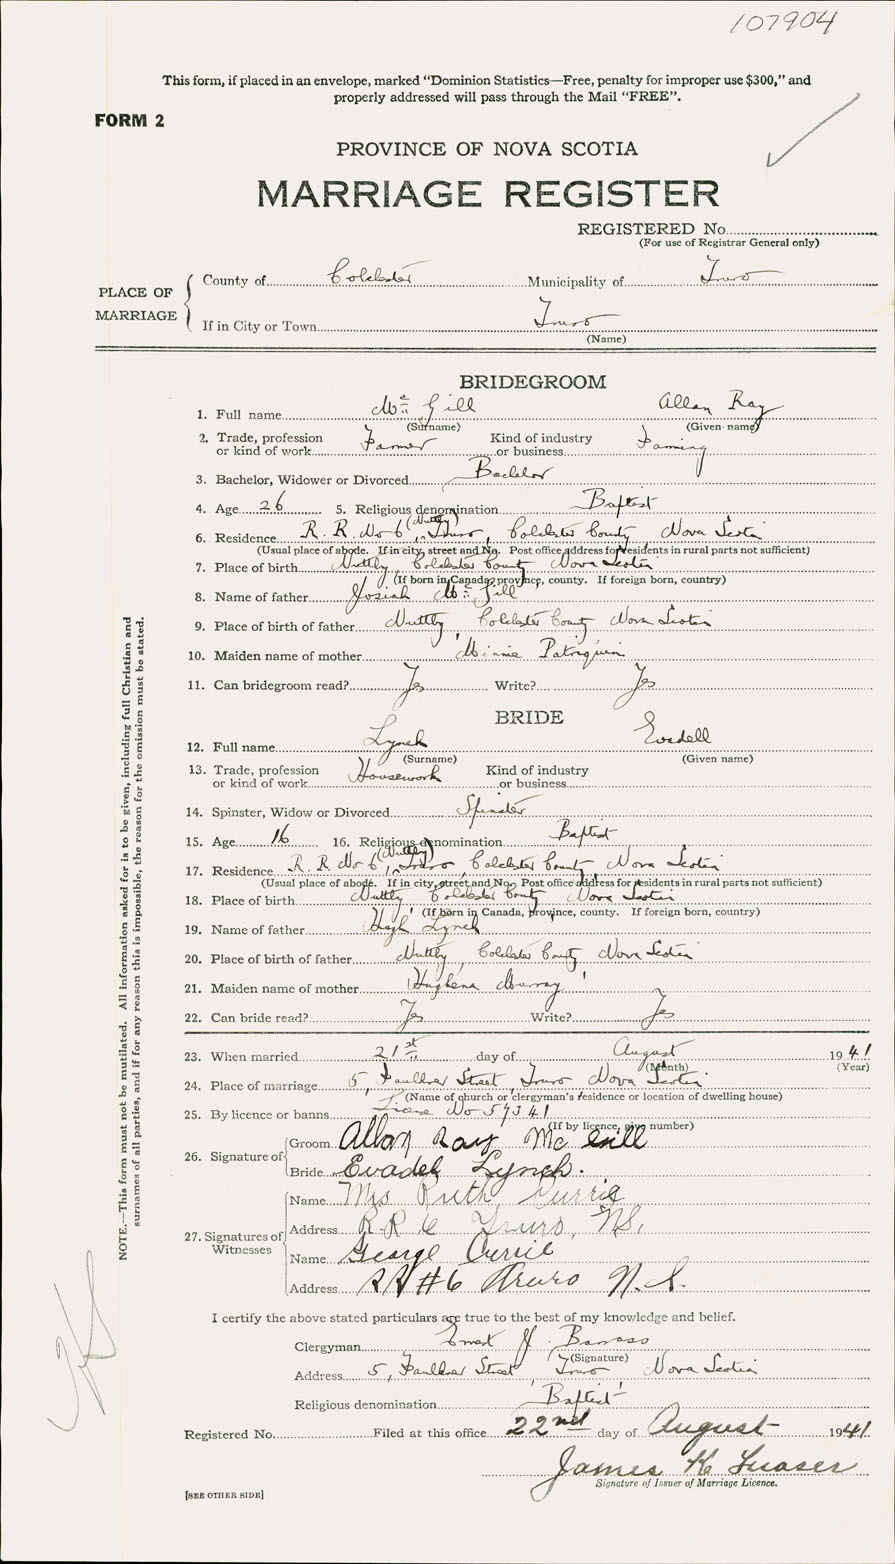 107904
This form, if placed in an envelope, marked “Dominion Statistics—Free, penalty for improper use $300,” and
properly addressed will pass through the Mail “FREE”.
FORM 2
PROVINCE OF NOVA SCOTIA
MARRIAGE REGISTER
REGISTERED No.
(For use of Registrar General only)
PLACE OF MARRIAGE
County of Colchester Municipality of Truro
If in City or Town Truro
(Name)
BRIDEGROOM
1. Full name McGill Allan Ray
(Surname) (Given name)
2. Trade, profession or kind of work Farmer Kind of industry or business Farming
3. Bachelor, Widower or Divorced Bachelor
4. Age 26 5. Religious denomination Baptist
6. Residence R. R. No 6 (Nuttby), Truro, Colchester County Nova Scotia
(Usual place of abode. If in city, street and No. Post office address for residents in rural parts not sufficient)
7. Place of birth Nuttby, Colchester County Nova Scotia
(If born in Canada, province, county. If foreign born, country)
8. Name of father Josiah McGill
9. Place of birth of father Nuttby, Colchester County Nova Scotia
10. Maiden name of mother Minnie Patriquin
11. Can bridegroom read? Yes Write? Yes
BRIDE
12. Full name Lynch Evadell
(Surname) (Given name)
13. Trade, profession or kind of work Housework Kind of industry or business
14. Spinster, Widow or Divorced Spinster
15. Age 16 16. Religious denomination Baptist
17. Residence R. R. No 6 (Nuttby), Truro, Colchester County Nova Scotia
(Usual place of abode. If in city, street and No. Post office address for residents in rural parts not sufficient)
18. Place of birth Nuttby, Colchester County Nova Scotia
(If born in Canada, province, county. If foreign born, country)
19. Name of father Hugh Lynch
20. Place of birth of father Nuttby, Colchester County Nova Scotia
21. Maiden name of mother Hughena Murray
22. Can bride read? Yes Write? Yes
23. When married 21st day of August 1941
(Month) (Year)
24. Place of marriage 5, Faulkner Street, Truro Nova Scotia
(Name of church or clergyman's residence or location of dwelling house)
25. By licence or banns License No 59341
(If by licence, give number)
26. Signature of
Groom Allan Ray McGill
Bride Evadell Lynch.
27. Signatures of Witnesses
Name Mrs Ruth Currie
Address R.R. 6 Truro, N.S.
Name George Currie
Address RR #6 Truro N.S.
I certify the above stated particulars are true to the best of my knowledge and belief.
Clergyman J. Barrass
(Signature)
Address 5, Faulkner Street, Truro, Nova Scotia
Religious denomination Baptist
Registered No. Filed at this office 22nd day of August 1941.
James K Fraser
Signature of Issuer of Marriage Licence.
[SEE OTHER SIDE]
NOTE.—This form must not be mutilated. All information asked for is to be given, including full Christian and
surnames of all parties, and if for any reason this is impossible, the reason for the omission must be stated.